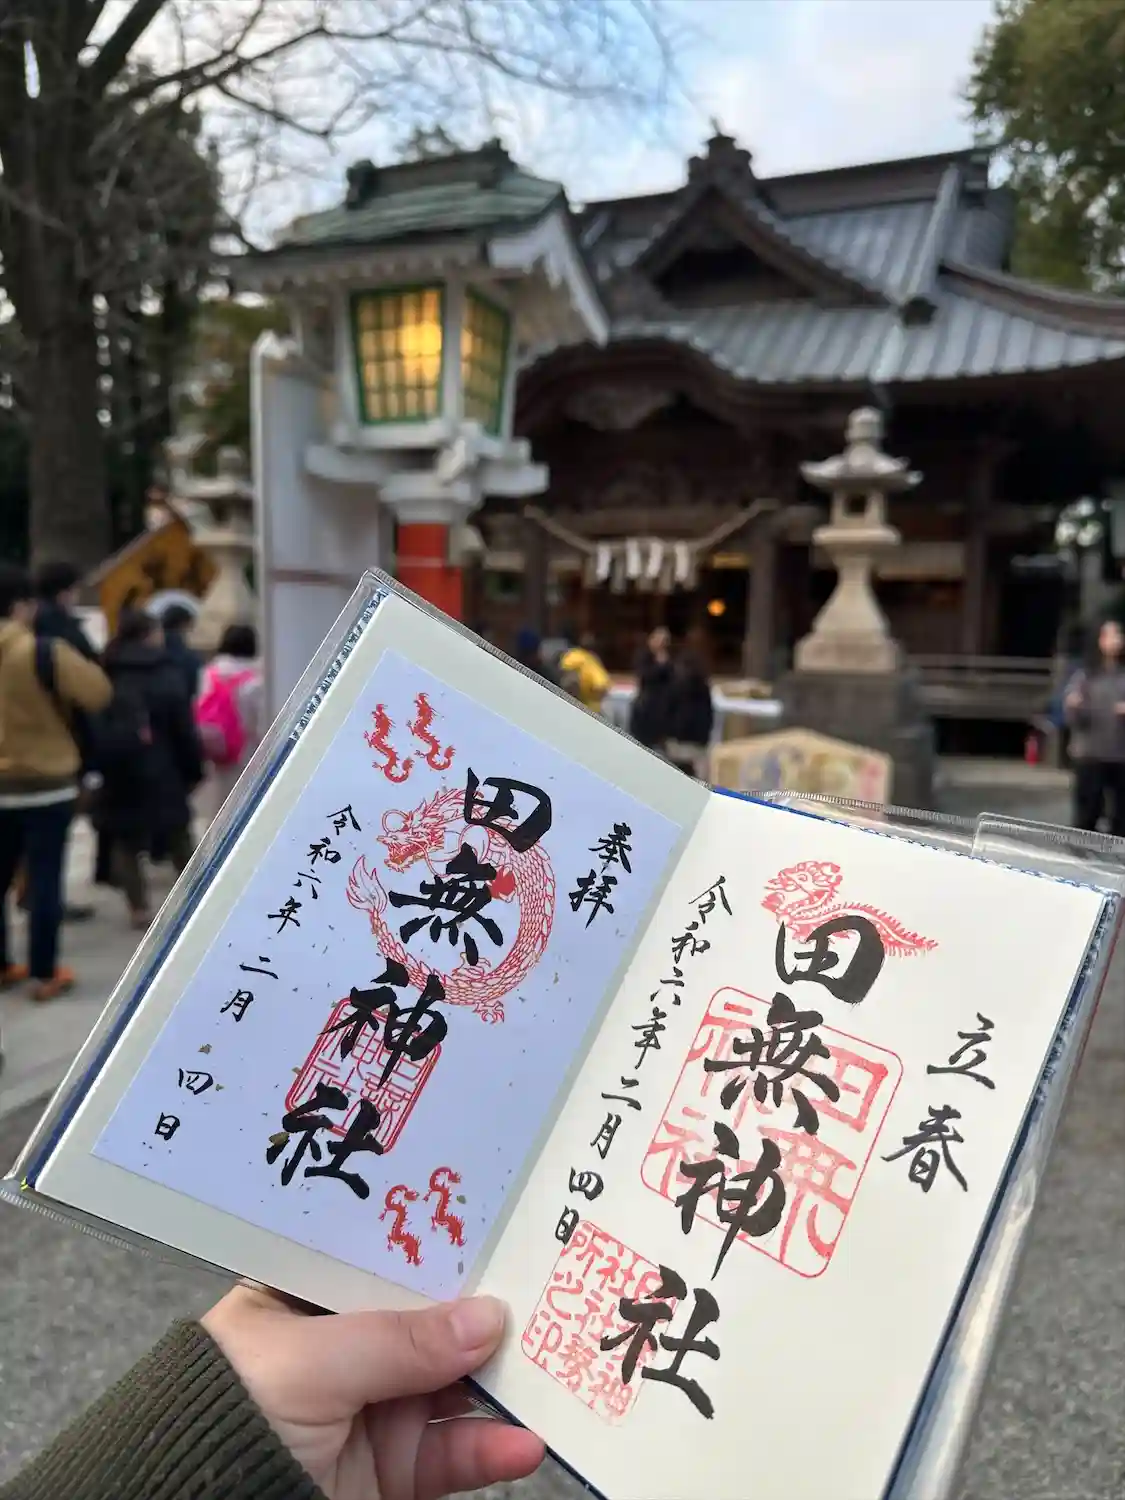 奉拝
田無神社
令和六年
二月
四日
立春
田無神社
令和六年二月四日
田無
神社
田無神
社社務
所之印